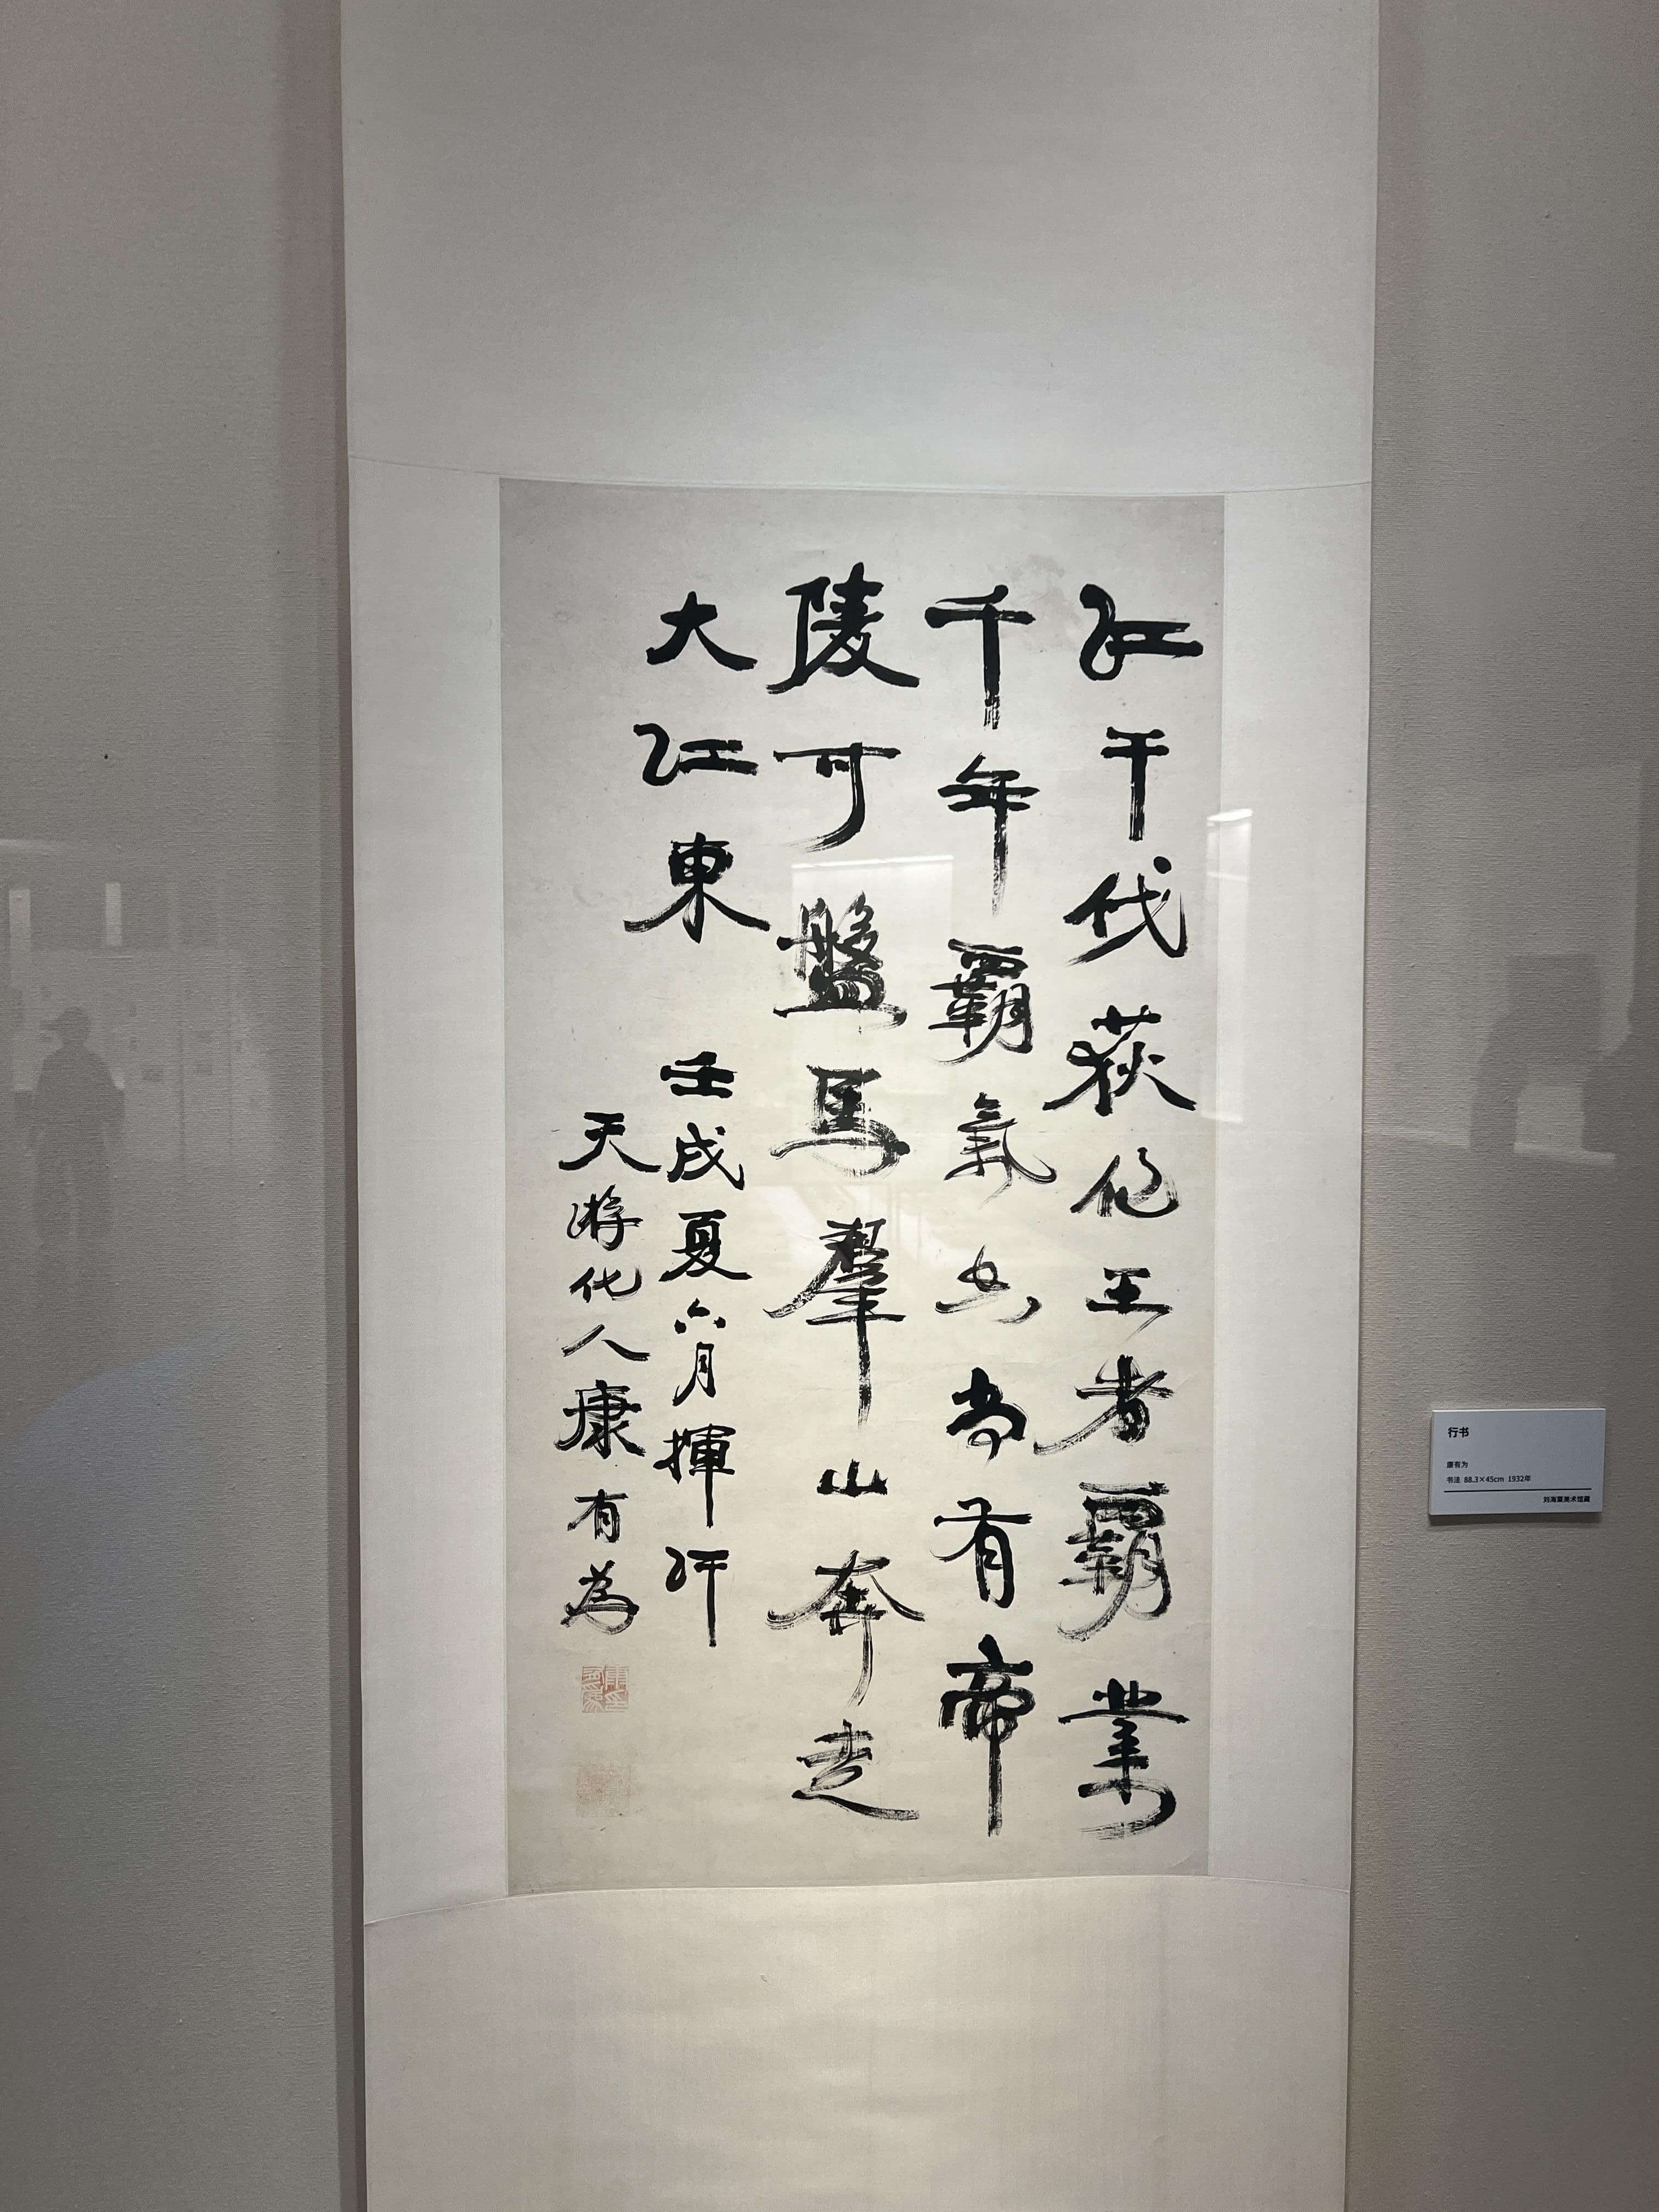 江干伐荻伧王者霸業
千年霸氣出尚有帝
陵可盤馬羣山奔走
大江東
壬戌夏六月揮汗
天游化人康有為
行书
康有为
书法 88.3×45cm 1932年
刘海粟美术馆藏